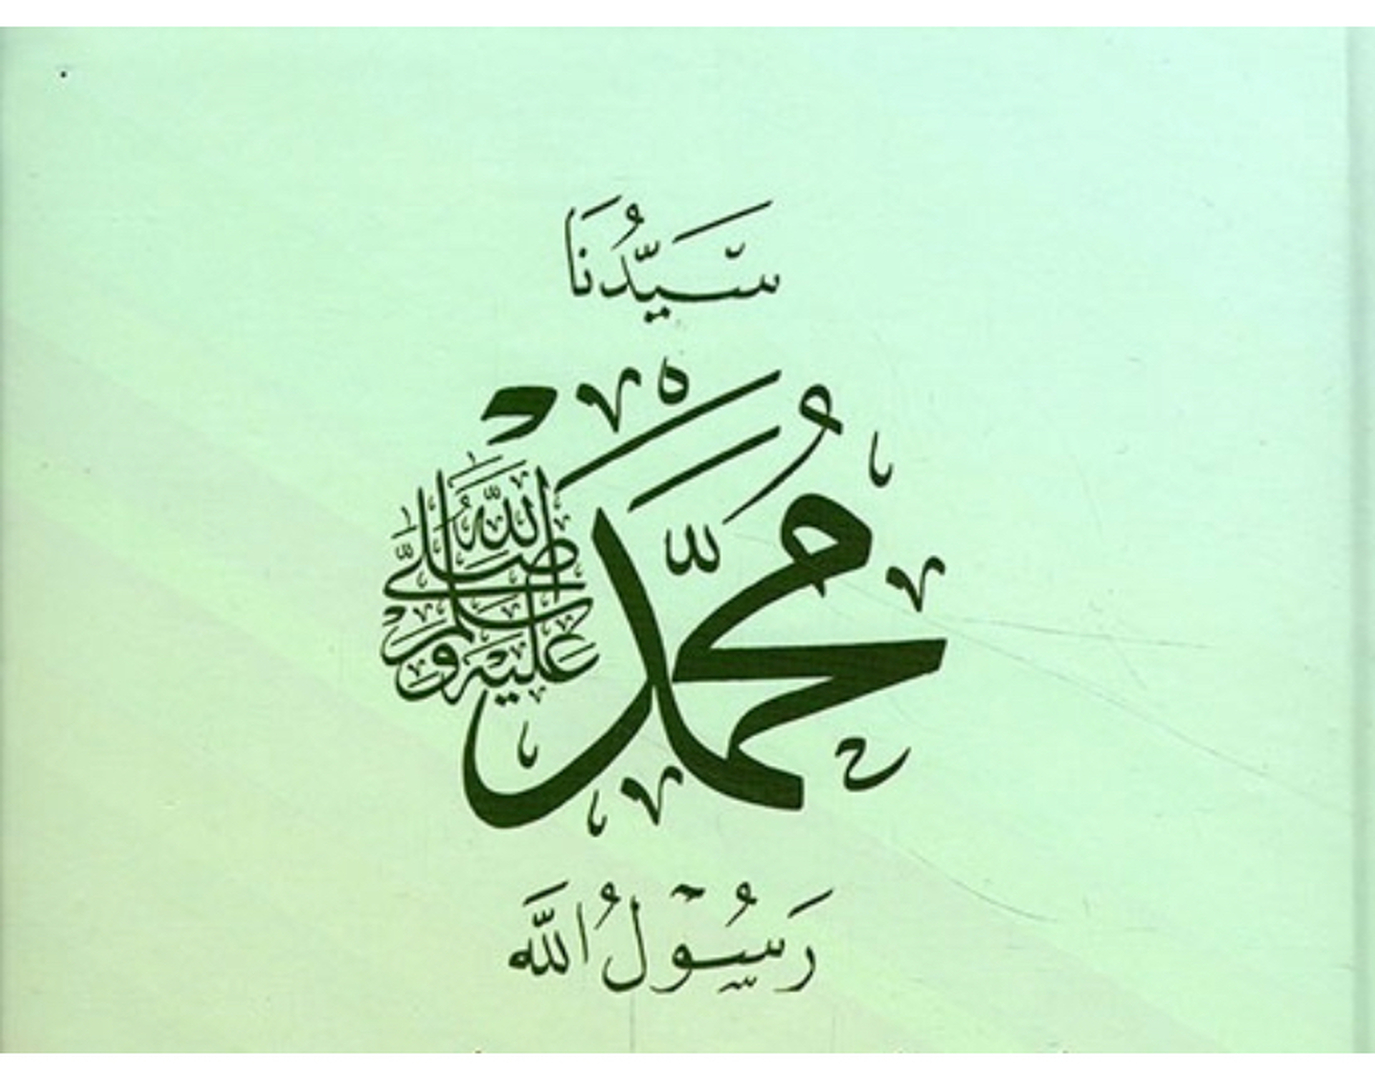 سَيِّدُنَا
مُحَمَّد
صَلَّى اللهُ عَلَيْهِ وَسَلَّم
رَسُوْلُ اللَّه